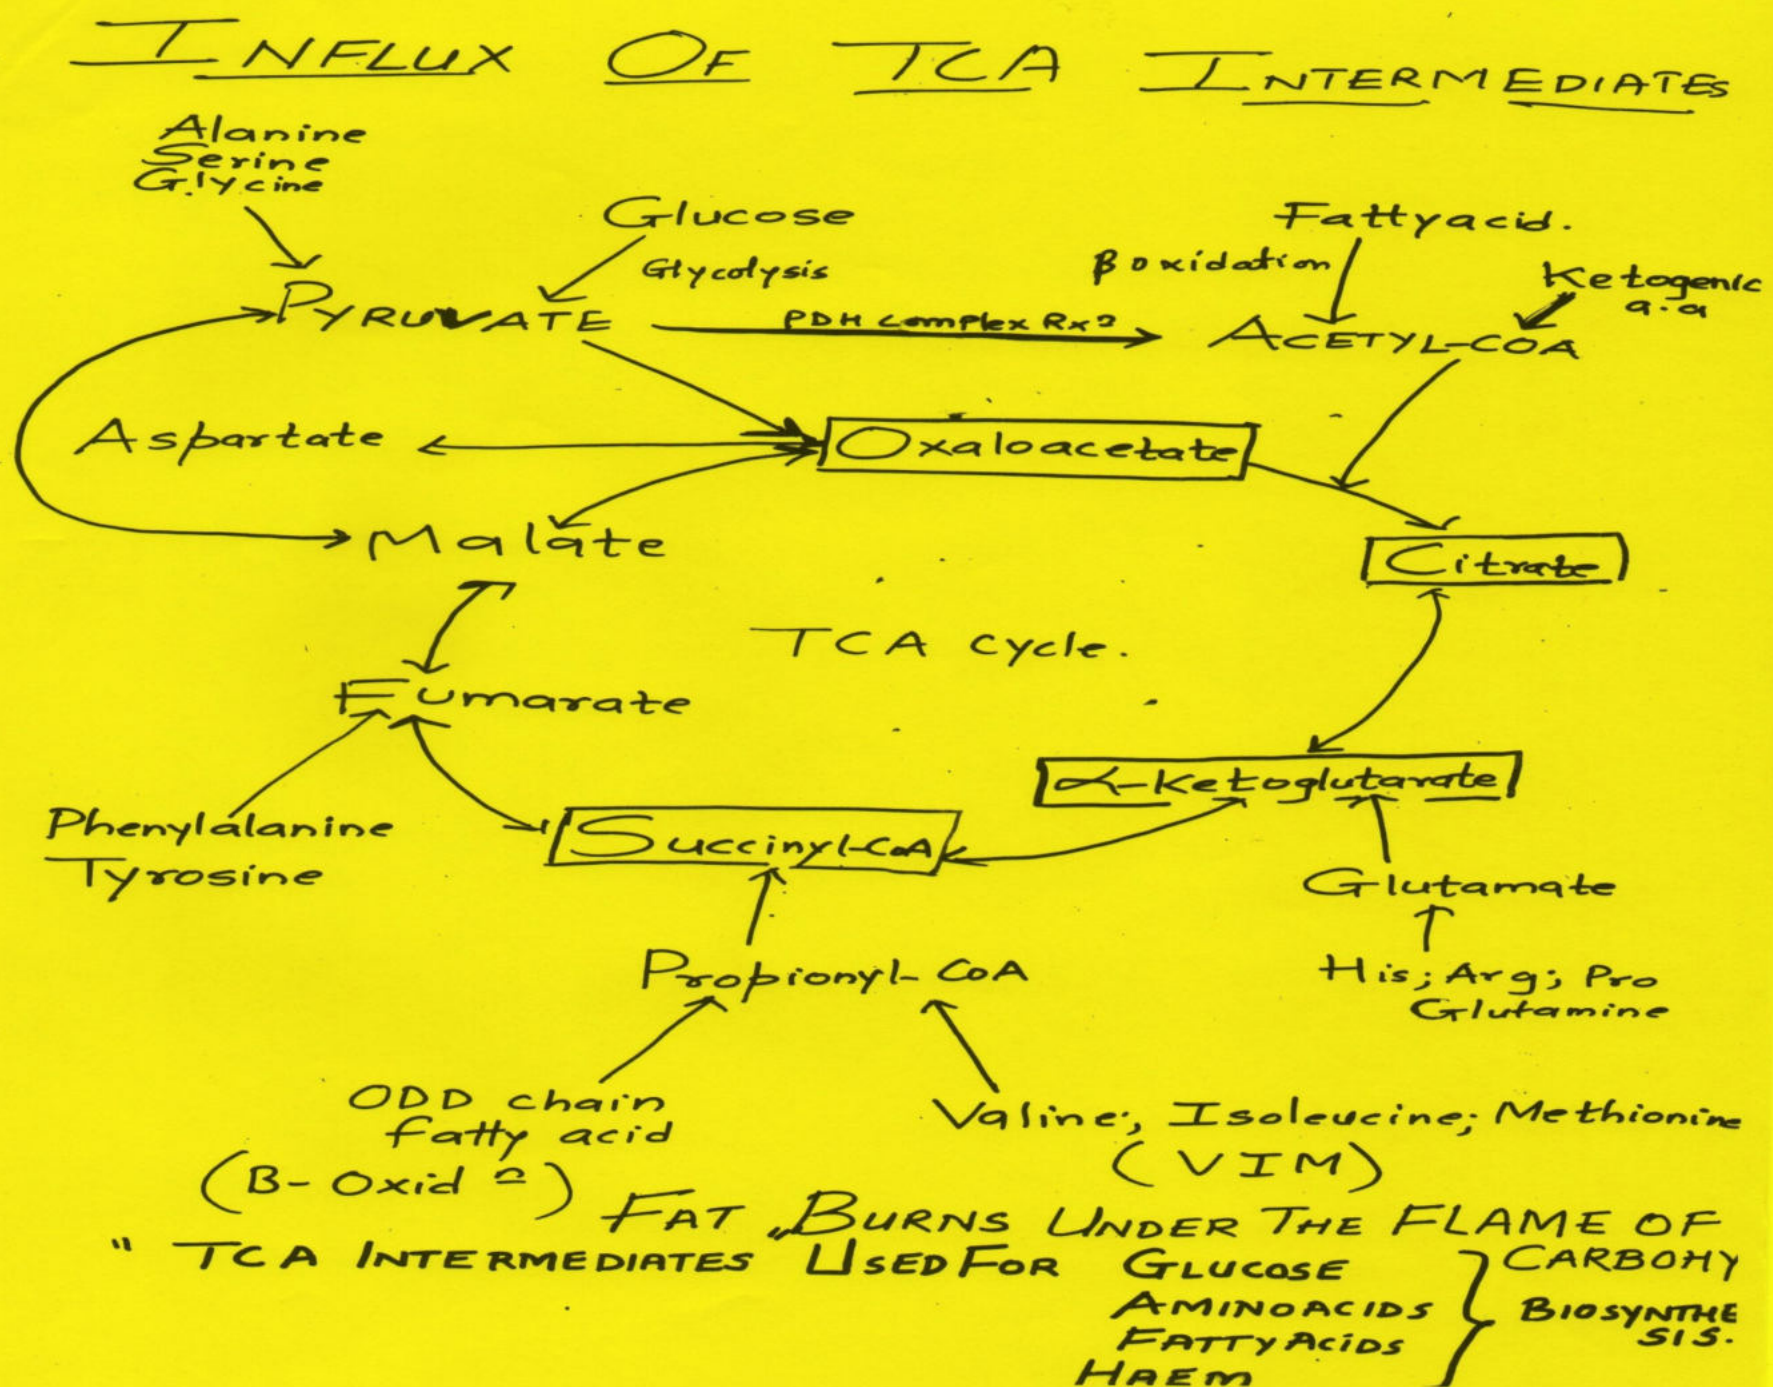 INFLUX OF TCA INTERMEDIATES
Alanine
Serine
Glycine
Glucose
Fattyacid.
Glycolysis
β oxidation
Ketogenic
a.a
PYRUVATE
PDH complex Rxn
ACETYL-COA
Aspartate
Oxaloacetate
Malate
Citrate
TCA cycle.
Fumarate
α-Ketoglutarate
Phenylalanine
Tyrosine
Succinyl-CoA
Glutamate
Propionyl-CoA
His; Arg; Pro
Glutamine
ODD chain
fatty acid
(B-Oxid n)
Valine; Isoleucine; Methionine
(VIM)
FAT BURNS UNDER THE FLAME OF
CARBOHY
" TCA INTERMEDIATES " USED FOR GLUCOSE
AMINOACIDS
FATTY ACIDS
HAEM
BIOSYNTHE
SIS.